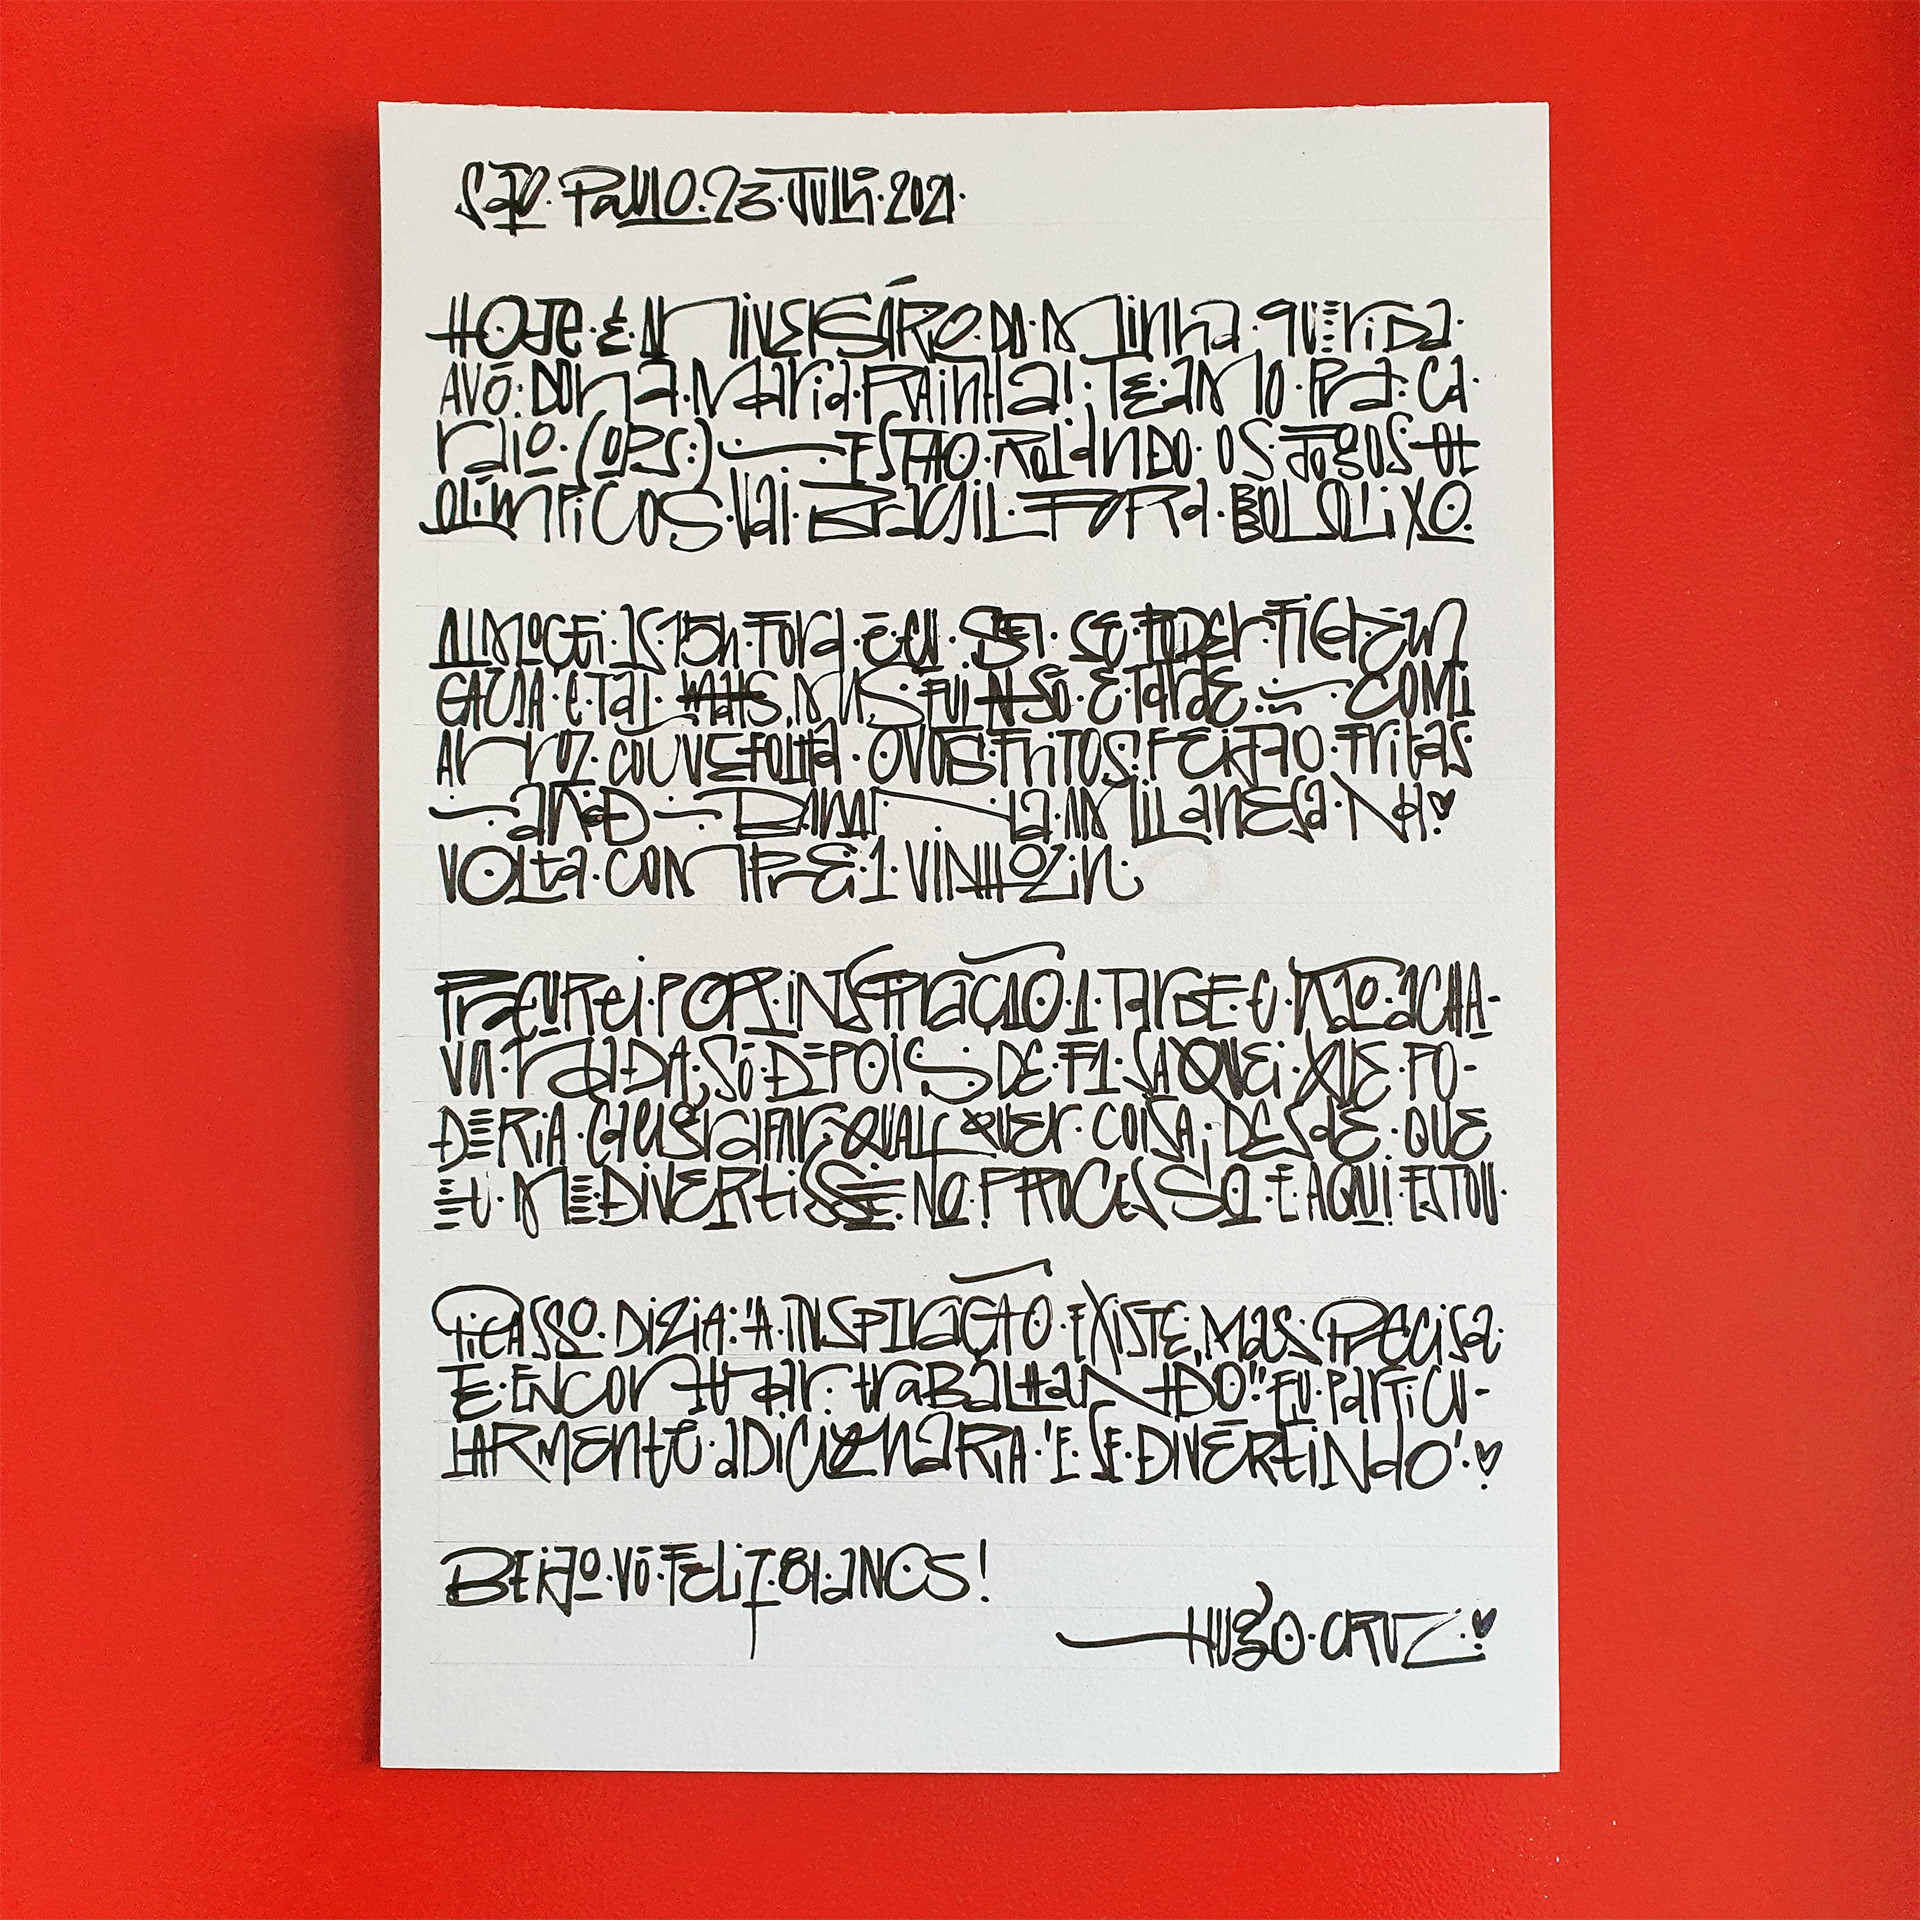 São Paulo. 23. Julh. 2021.
Hoje é aniversário da minha querida
avó. Dona Maria Rainha! Te amo pra ca-
ralio. (ops:) — Estão rolando os jogos ol
olímpicos. Vai Brasil Fora Bolsolixo.
Almocei às 15h. Fora. é eu sei se poder ficar em
casa e tal mas fui só e tarde — comi
arroz. couve folha. ovos fritos. feijão. fritas.
— and — à milanesa. Na
volta comprei 1 vinhozin
Procurei por inspiração à tarde e não acha-
va nada, só depois de saquei que po-
deria caligrafar qualquer coisa, desde que
eu me divertisse no processo. E aqui estou.
Picasso dizia: "A inspiração existe, mas precisa
te encontrar trabalhando" Eu particu-
larmente adicionaria 'e se divertindo'.
Beijo vó. Feliz 81 anos!
— Hugo Cruz